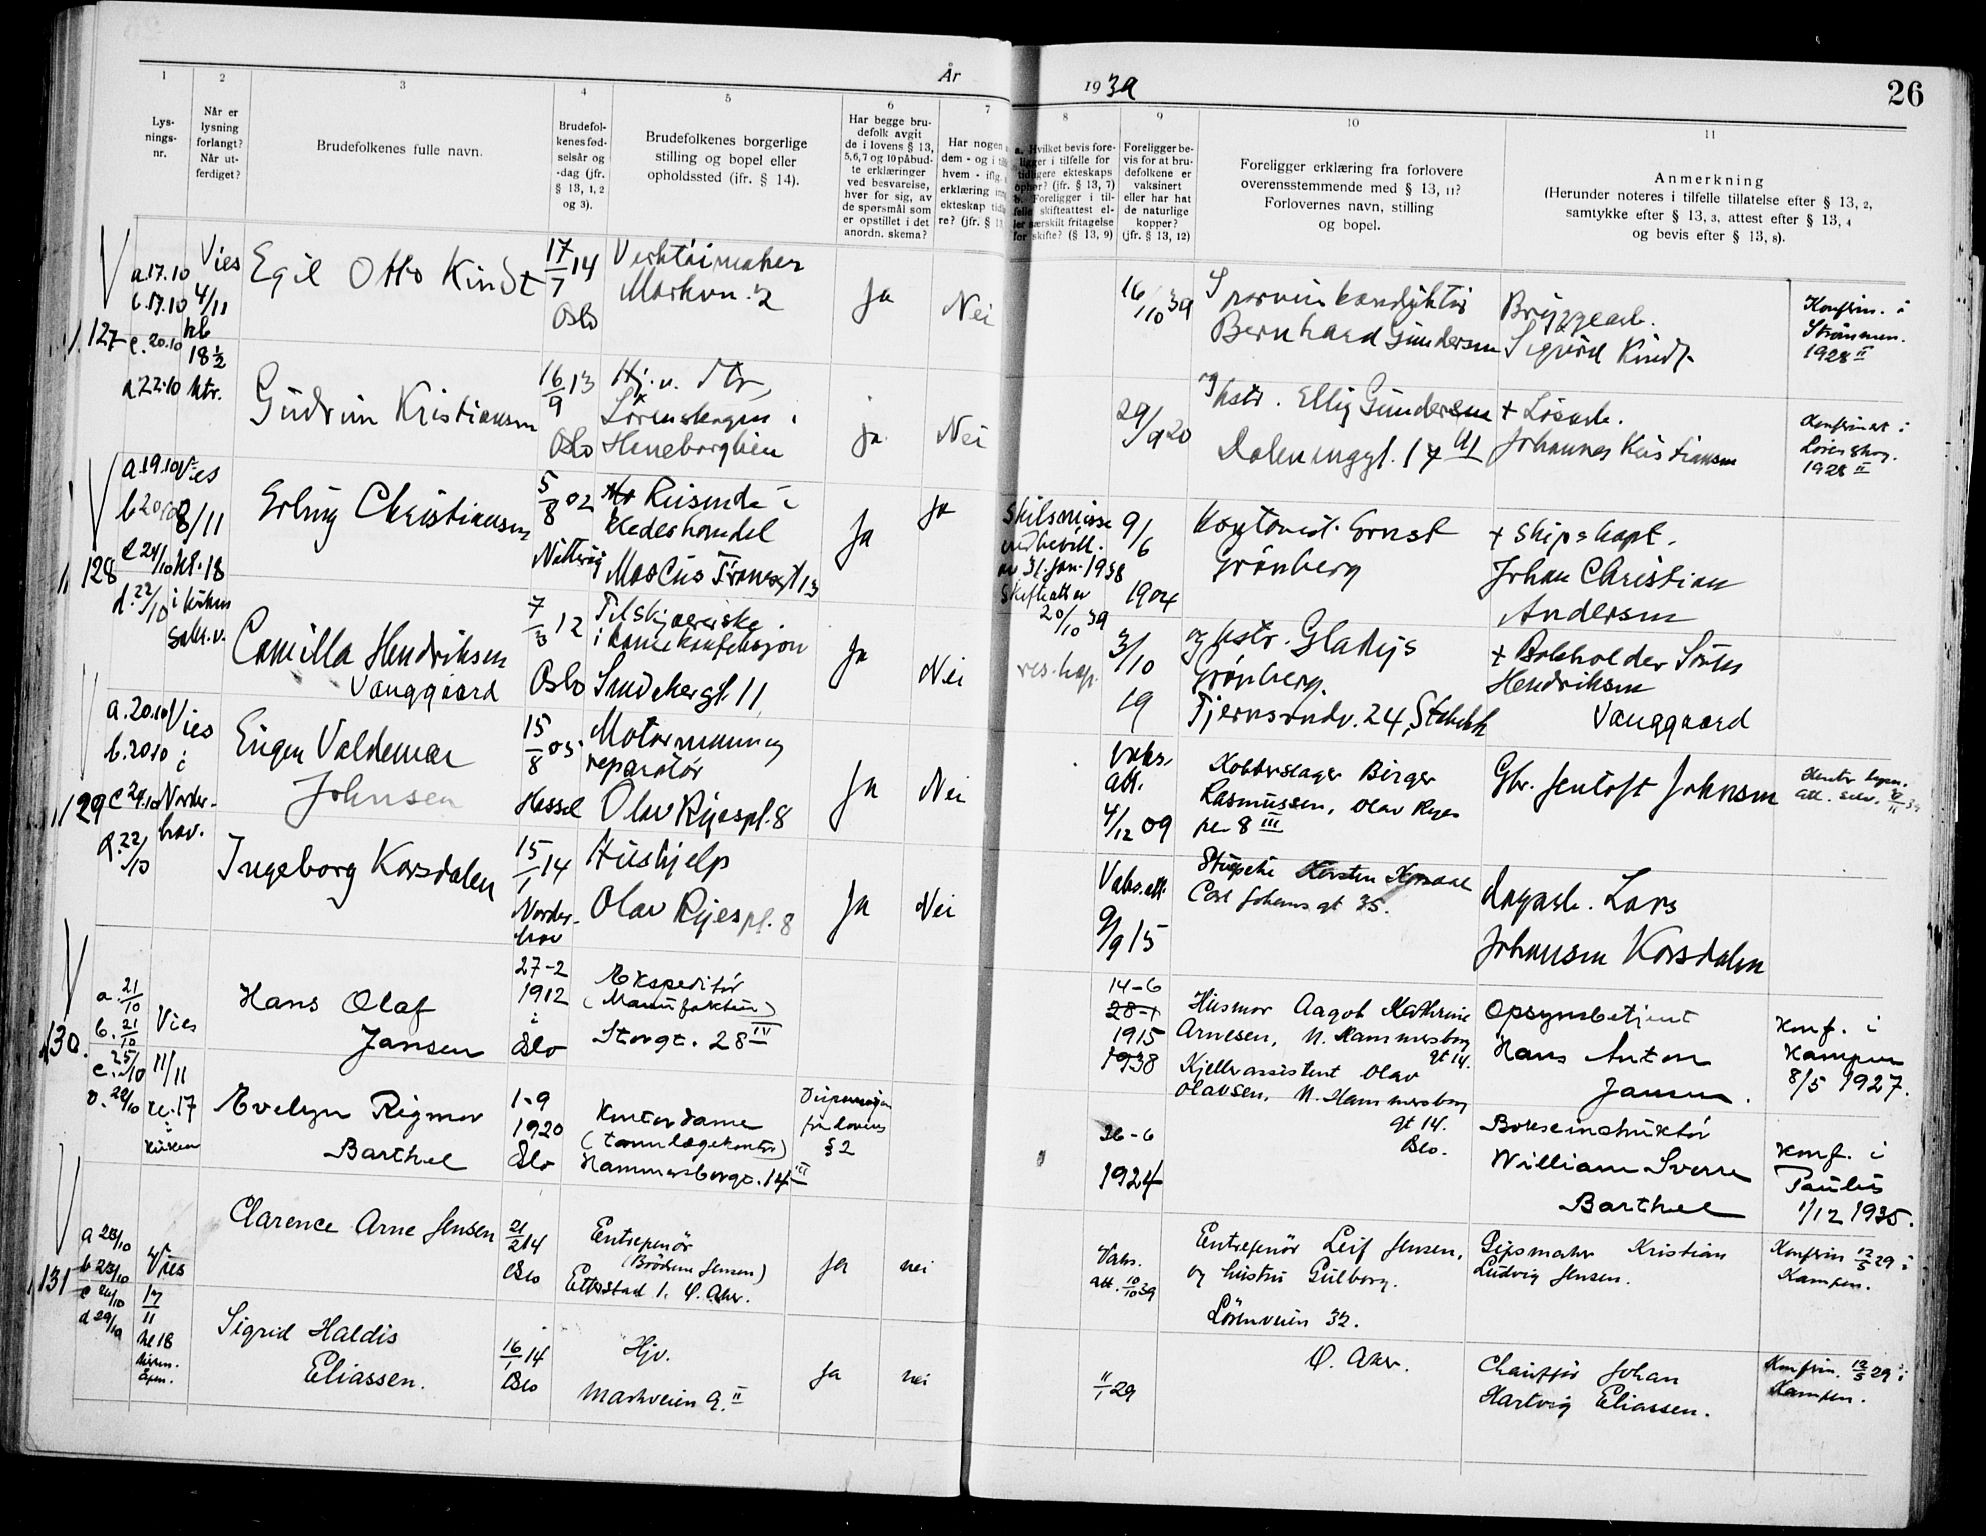 År 1939
26
1
2
3
4
5
6
7
8
9
10
11
Lys-
nings-
nr.
Når er
lysning
forlangt?
Når ut-
ferdiget?
Brudefolkenes fulle navn.
Brudefol-
kenes fød-
selsår og
-dag (jfr.
§ 13, 1, 2
og 3).
Brudefolkenes borgerlige
stilling og bopel eller
opholdssted (jfr. § 14).
Har begge bru-
defolk avgit
de i lovens § 13,
5, 6, 7 og 10 påbud-
te erklæringer
ved besvarelse,
hver for sig, av
de spørsmål som
er opstillet i det
anordn. skema?
Har nogen
dem - og i
hvem - iflg.
erklæring
ekteskap
re? (jfr. § 13
a. Hvilket bevis fore-
ligger i tilfelle for
tidligere ekteskaps
ophør? (jfr. § 13, 7)
b. Foreligger i til-
felle skifteattest el-
ler særskilt fritagelse
for skifte? (§ 13, 9)
Foreligger be-
vis for at bru-
defolkene er
vaksinert
eller har hat
de naturlige
kopper?
(jfr. § 13, 12)
Foreligger erklæring fra forlovere
overensstemmende med § 13, 11?
Forlovernes navn, stilling
og bopel.
Anmerkning
(Herunder noteres i tilfelle tillatelse efter § 13, 2,
samtykke efter § 13, 3, attest efter § 13, 4
og bevis efter § 13, 8).
127
a.17.10
b.17.10
c.20.10
d.22.10
Vies
4/11
kl.
18 1/2
Egil Otto Kindt
17/7 14
Oslo
Verktøimaker
Markvn. 2
Ja
Nei
16/10 39
Bernhard Gundersen
Bryggearb.
Sigurd Kindt
Konfirm. i
Strømmen.
1928 II
Gudrun Kristiansen
16/9 13
Oslo
Hj. v. Str.
Lørenskogen i
Ja
Nei
29/9 20
og hstr. Elly Gundersen
Dalenenggt. 17 III
+ Løsarb.
Johannes Kristiansen
Konfirmert i
Lørenskog.
1928 II
128
a.19.10
b.20.10
c.24/10
d.22/10
Vies
8/11
kl. 18
i kirken
Erling Christiansen
5/8 02
Reisende i
kledeshandel
Marcus Tranesgt 13
Ja
Ja
Skilsmisse
ved bevill.
av 31. jan. 1938
Skifteatt av
20/10 39
9/6
1904
Kontorist. Ernst
Grønberg
+ Skipskapt.
Johan Christian
Andersen
Camilla Hendriksen
Vanggaard
7/3 12
Oslo
Tilskjærerske
i damekonfeksjon
Ja
Nei
res. kap.
3/10
19
og hstr. Gladys
Grønberg.
Tjernsrudv. 24, Stabekk
Hendriksen
Vanggaard
129
a.20.10
b.20.10
c.24.10
d.22/10
Vies
i
Norder-
hov.
Eugen Valdemar
Johnsen
15/8 05
Hassel
Motormann og
reparatør
Olav Ryes pl. 8
Ja
Nei
Vaks.
att.
4/12 09
Kobberslager Birger
Rasmussen, Olav Ryes
pl. 8 III
Gbr. Jentoft Johnsen
Ingeborg Korsdalen
15/1 14
Norder-
hov
Hushjelp
Olav Ryes pl. 8
Ja
Nei
Vaks.att.
9/9 15
Carl Johans gt 35.
Dagarb. Lars
Johansen Korsdalen
130.
a. 21/10
b. 21/10
c. 25/10
d. 29/10
Vies
11/11
kl. 17
i
kirken
Hans Olaf
Jansen
27-2
1912
i
Oslo
Ekspeditør
(Manufaktur)
Storgt. 28 IV
14-6
28-1
1915
1938
Husmor Aagot Kathrine
Arnesen, N. Hammersborg
gt 14.
Kjellerassistent Olav
Olavsen, N. Hammersborg
gt 14.
Oslo.
Opsynsbetjent
Hans Anton
Jansen.
Konf. i
Kampen
8/5 1927.
Evelyn Rigmor
Barthel
1-9
1920
Oslo
Kontordame
(tannlægekontor)
Hammersborggt. 14 III
Dispensasjon
fra lovens
§ 2
26-6
1924
Bokseinstruktør
William Sverre
Barthel
Konf. i
Paulus
1/12 1935.
131
a 23/10
b 23/10
c 26/10
d 29/10
Vies
17/11
kl 18
Clarence Arne Jensen
21/2 14
Oslo
Entrepenør
(Brødrene Jensen)
Ja
nei
Vaks.
att. 10/10 39
Entrepenør Leif Jensen,
og hustru Gulborg.
Lørenveien 32.
Ø. Aker.
Gipsmaker Kristian
Ludvig Jensen.
Konfirm 12/5 29 i
Kampen.
Sigrid Haldis
Eliassen.
16/1 14
Oslo
Hjv.
Markveien 9. II
Ja
nei
11/1 29
Chauffør Johan
Hartvig Eliassen.
Konfirm. 12/5 29 i
Kampen.